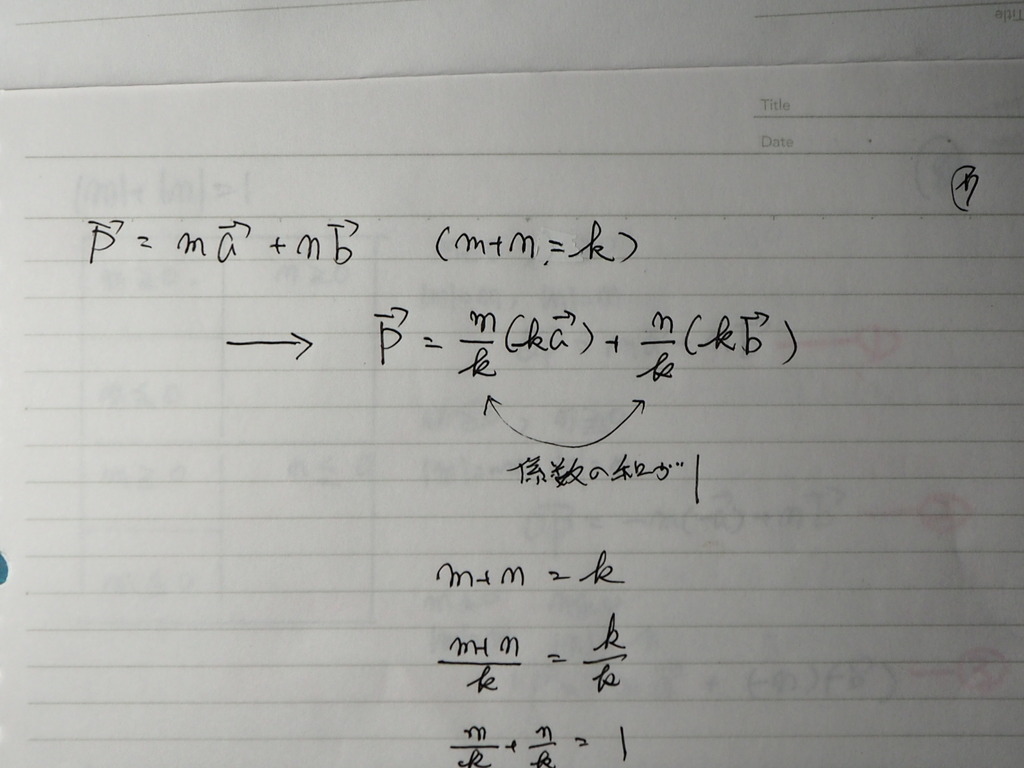 Title
Date
p⃗ = m a⃗ + n b⃗ (m+n = k)
→ p⃗ = m/k (k a⃗) + n/k (k b⃗)
係数の和が1
m+n = k
(m+n)/k = k/k
m/k + n/k = 1